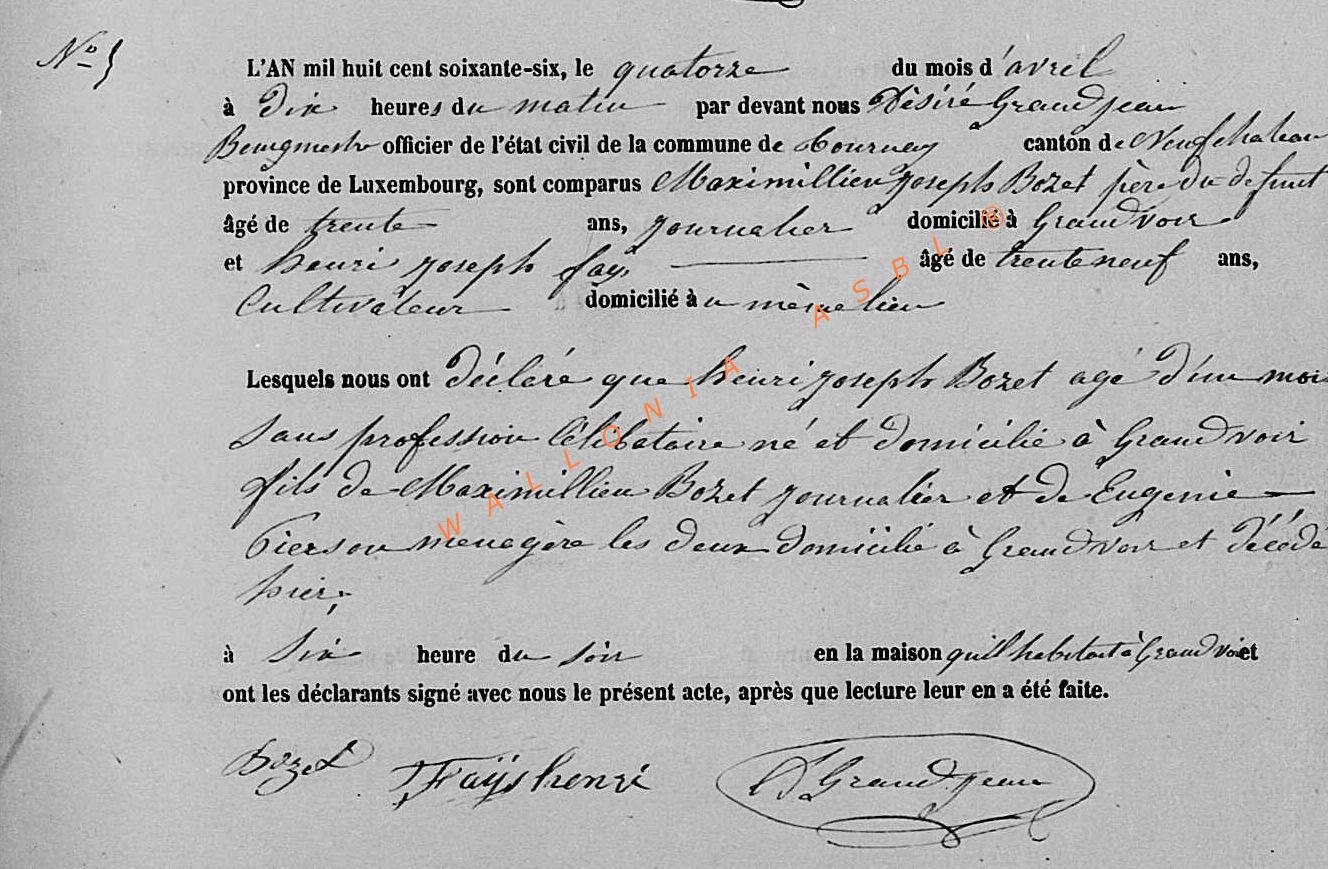 N° 5
L'AN mil huit cent soixante-six, le quatorze du mois d'avril
à Dix heures du matin par devant nous Désiré Grandjean
Bourgmestre officier de l'état civil de la commune de Tournay canton de Neufchateau
province de Luxembourg, sont comparus Maximillien joseph Bozet père du defunt
âgé de trente ans, journalier domicilié à Grandvoir
et henri joseph fays âgé de trente neuf ans,
Cultivateur domicilié à u mème lieu
Lesquels nous ont déclaré que henri joseph Bozet agé d'un mois
sans profession Célibataire né et domicilié à Grandvoir
fils de Maximillien Bozet journalier et de Eugenie
Pierson menagère les deux domicilié à Grandvoir et décédé
hier
à Six heure du soir en la maison qu'il habitait à Grandvoir et
ont les déclarants signé avec nous le présent acte, après que lecture leur en a été faite.
Bozet Fays henri D Grandjean
WALLONIA ASBL ®